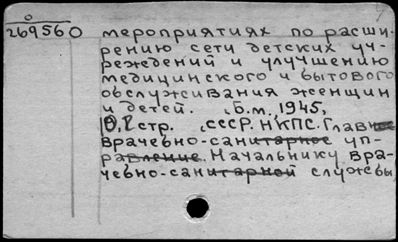 269560 мероприятиях по расши-
рению сети детских уч-
реждений и улучшению
медицинского и бытового
обслуживания женщин
и детей. Б.м., 1945,
стр. СССР. НКПС. Главное
врачебно-санитарное уп-
равление. Начальнику вра-
чебно-санитарной службы